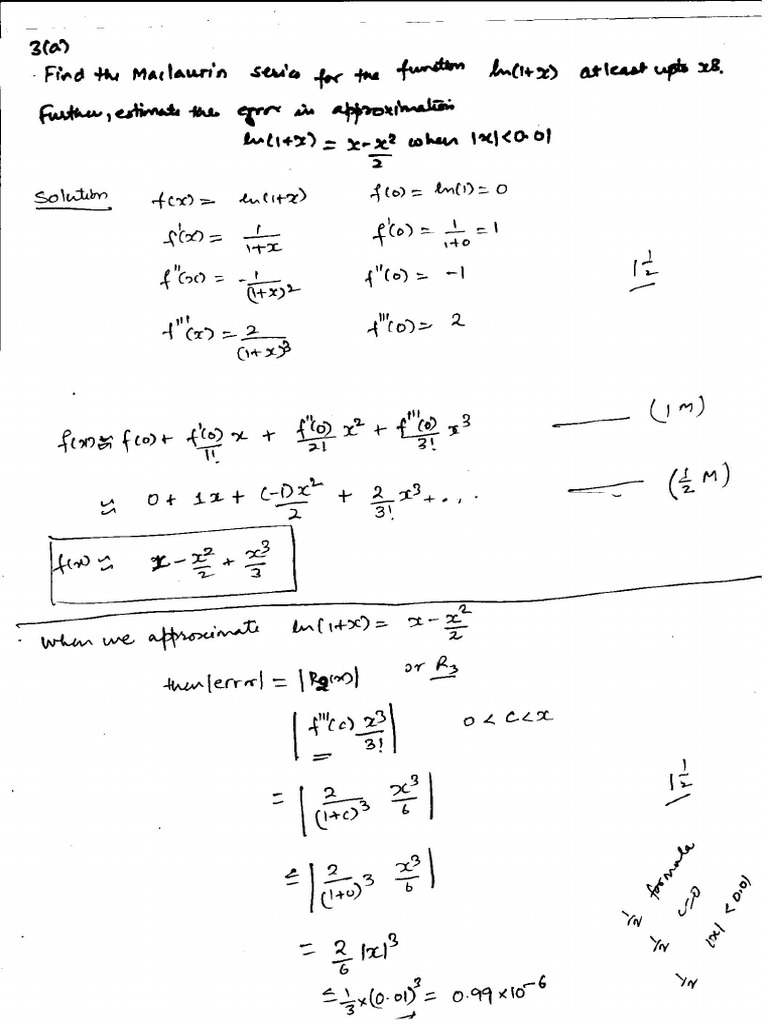 3(a)
. Find the Maclaurin series for the function ln(1+x) atleast upto x3.
Further, estimate the error in approximation
ln(1+x) = x - x²/2 when |x|<0.01
Solution f(x) = ln(1+x) f(0) = ln(1) = 0
f'(x) = 1/(1+x) f'(0) = 1/(1+0) = 1
f''(x) = -1/(1+x)² f''(0) = -1 1 1/2
f'''(x) = 2/(1+x)³ f'''(0) = 2
f(x) ≈ f(0) + f'(0)/1! x + f''(0)/2! x² + f'''(0)/3! x³ —— (1 M)
≈ 0 + 1x + (-1)x²/2 + 2/3! x³ + ... —— (1/2 M)
f(x) ≈ x - x²/2 + x³/3
. When we approximate ln(1+x) = x - x²/2
then |error| = |R2(x)| or R3
|f'''(c) x³/3!| 0 < c < x
= |2/(1+c)³ x³/6| 1 1/2
≤ |2/(1+0)³ x³/6|
= 2/6 |x|³
≤ 1/3 × (0.01)³ = 0.99 × 10⁻⁶
1/2 formula
1/2 c=0
1/2 |x| < 0.01